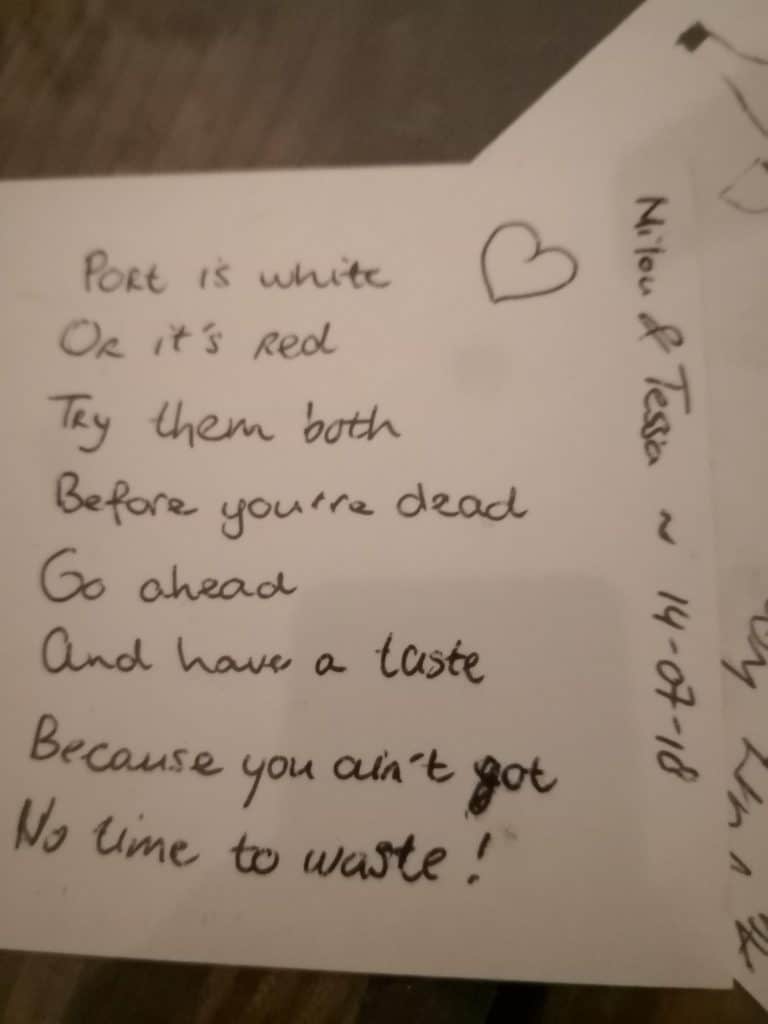 Port is white
Or it's red
Try them both
Before you're dead
Go ahead
And have a taste
Because you ain't got
No time to waste!
Nilou & Tessa ~ 14-07-18